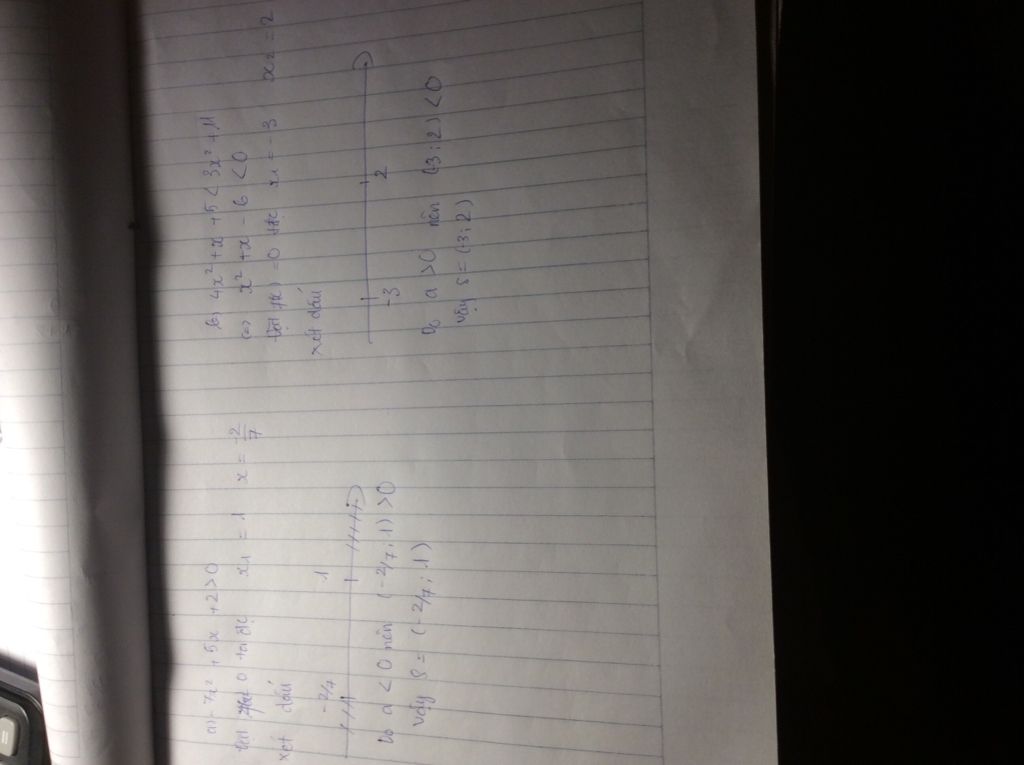 a) -7x² + 5x + 2 > 0
0 ta đc x1 = 1 x = -2/7
xét dấu
-2/7 1
Do a < 0 nên (-2/7 ; 1) > 0
vậy S = (-2/7 ; 1)
b) 4x² + x + 5 < 3x² + 11
(=) x² + x - 6 < 0
f(x) = 0 x1 = -3 x2 = 2
xét dấu
-3 2
Do a > 0 nên (-3 ; 2) < 0
vậy S = (-3 ; 2)